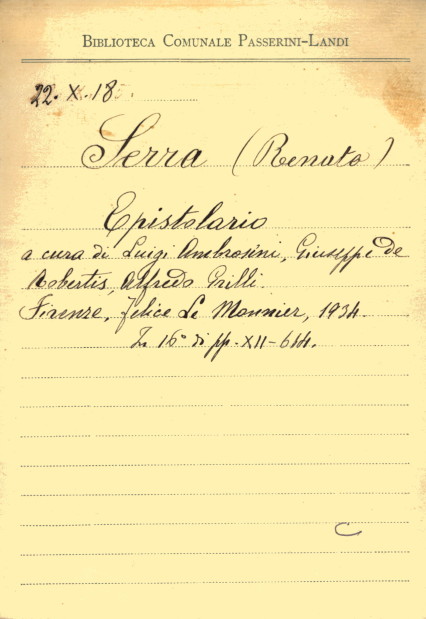 BIBLIOTECA COMUNALE PASSERINI-LANDI
22. X. 18.
Serra (Renato)
Epistolario
a cura di Luigi Ambrosini, Giuseppe De
Robertis, Alfredo Grilli.
Firenze, Felice Le Monnier, 1934.
In 16° di pp. XII-614.
C